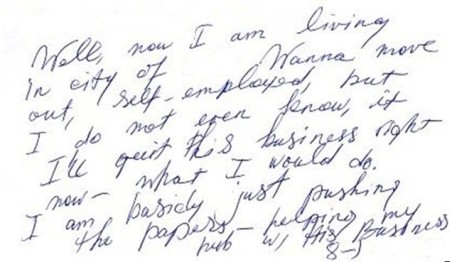 Well, now I am living
in city of        Wanna move
out, self-employed, but
I do not even know, if
I'll quit this business right
now - what I would do.
I am basicly just pushing
the papers - helping my
hub w/ this Business
8-5